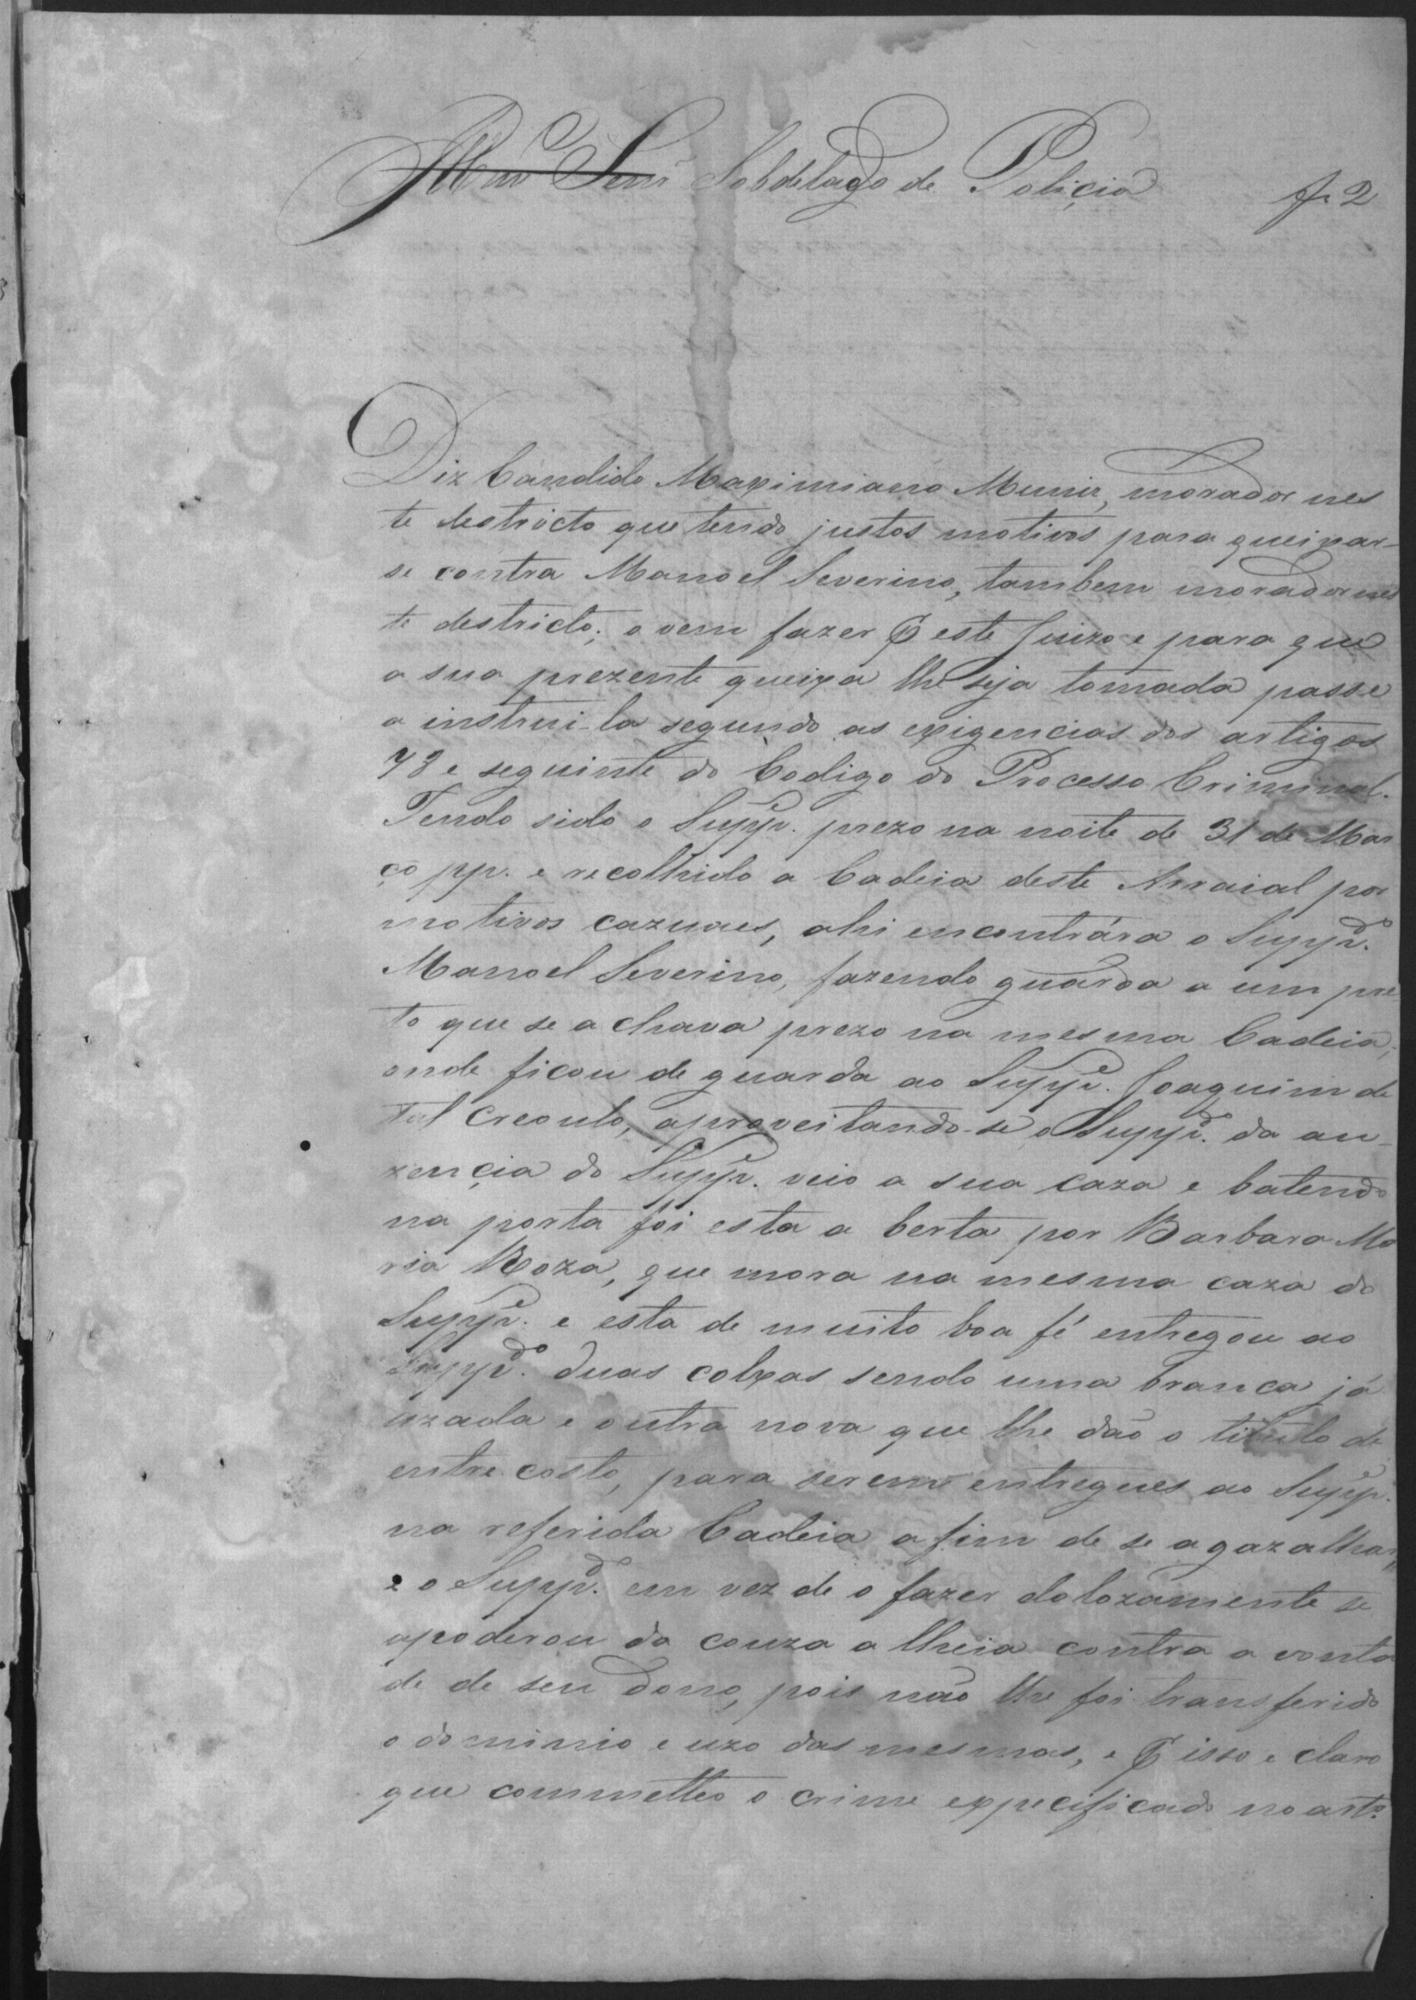 Illmo Senr Sobdelagdo de Policia
f. 2
Diz Candido Maximiano Muniz, morador nes
te destricto que tendo justos motivos para queixar-
se contra Manoel Severino, tambem morador nes
te destricto; o vem fazer p este Juizo e para que
a sua prezente queixa lhe seja tomada passe
a instrui-la segundo as exigencias dos artigos
78 e seguinte do Codigo do Processo Criminal.
Tendo sido o Suppe. prezo na noite de 31 de Mar
ço pp. e recolhido a Cadeia deste Arraial por
motivos cazuaes, ahi encontrára o Suppdo.
Manoel Severino, fazendo guarda a um pre
to que se achava prezo na mesma Cadeia,
onde ficou de guarda ao Suppe. Joaquim de
tal creoulo, aproveitando-se o Suppdo. da au-
zencia do Suppe. veio a sua caza e batendo
na porta foi esta aberta por Barbara Ma
ria Roza, que mora na mesma caza do
Suppe. e esta de muito boa fé entregou ao
Suppdo. duas colxas sendo uma branca já
uzada e outra nova que lhe dão o titulo de
entre costo, para serem entregues ao Suppe.
na referida Cadeia a fim de se agazalhar,
e o Suppdo. em vez de o fazer dolozamente se
apoderou da couza alheia contra a vonta
de de seu dono, pois não lhe foi transferido
o dominio e uzo das mesmas, e p isso e claro
que commetteo o crime expecificado no arto.